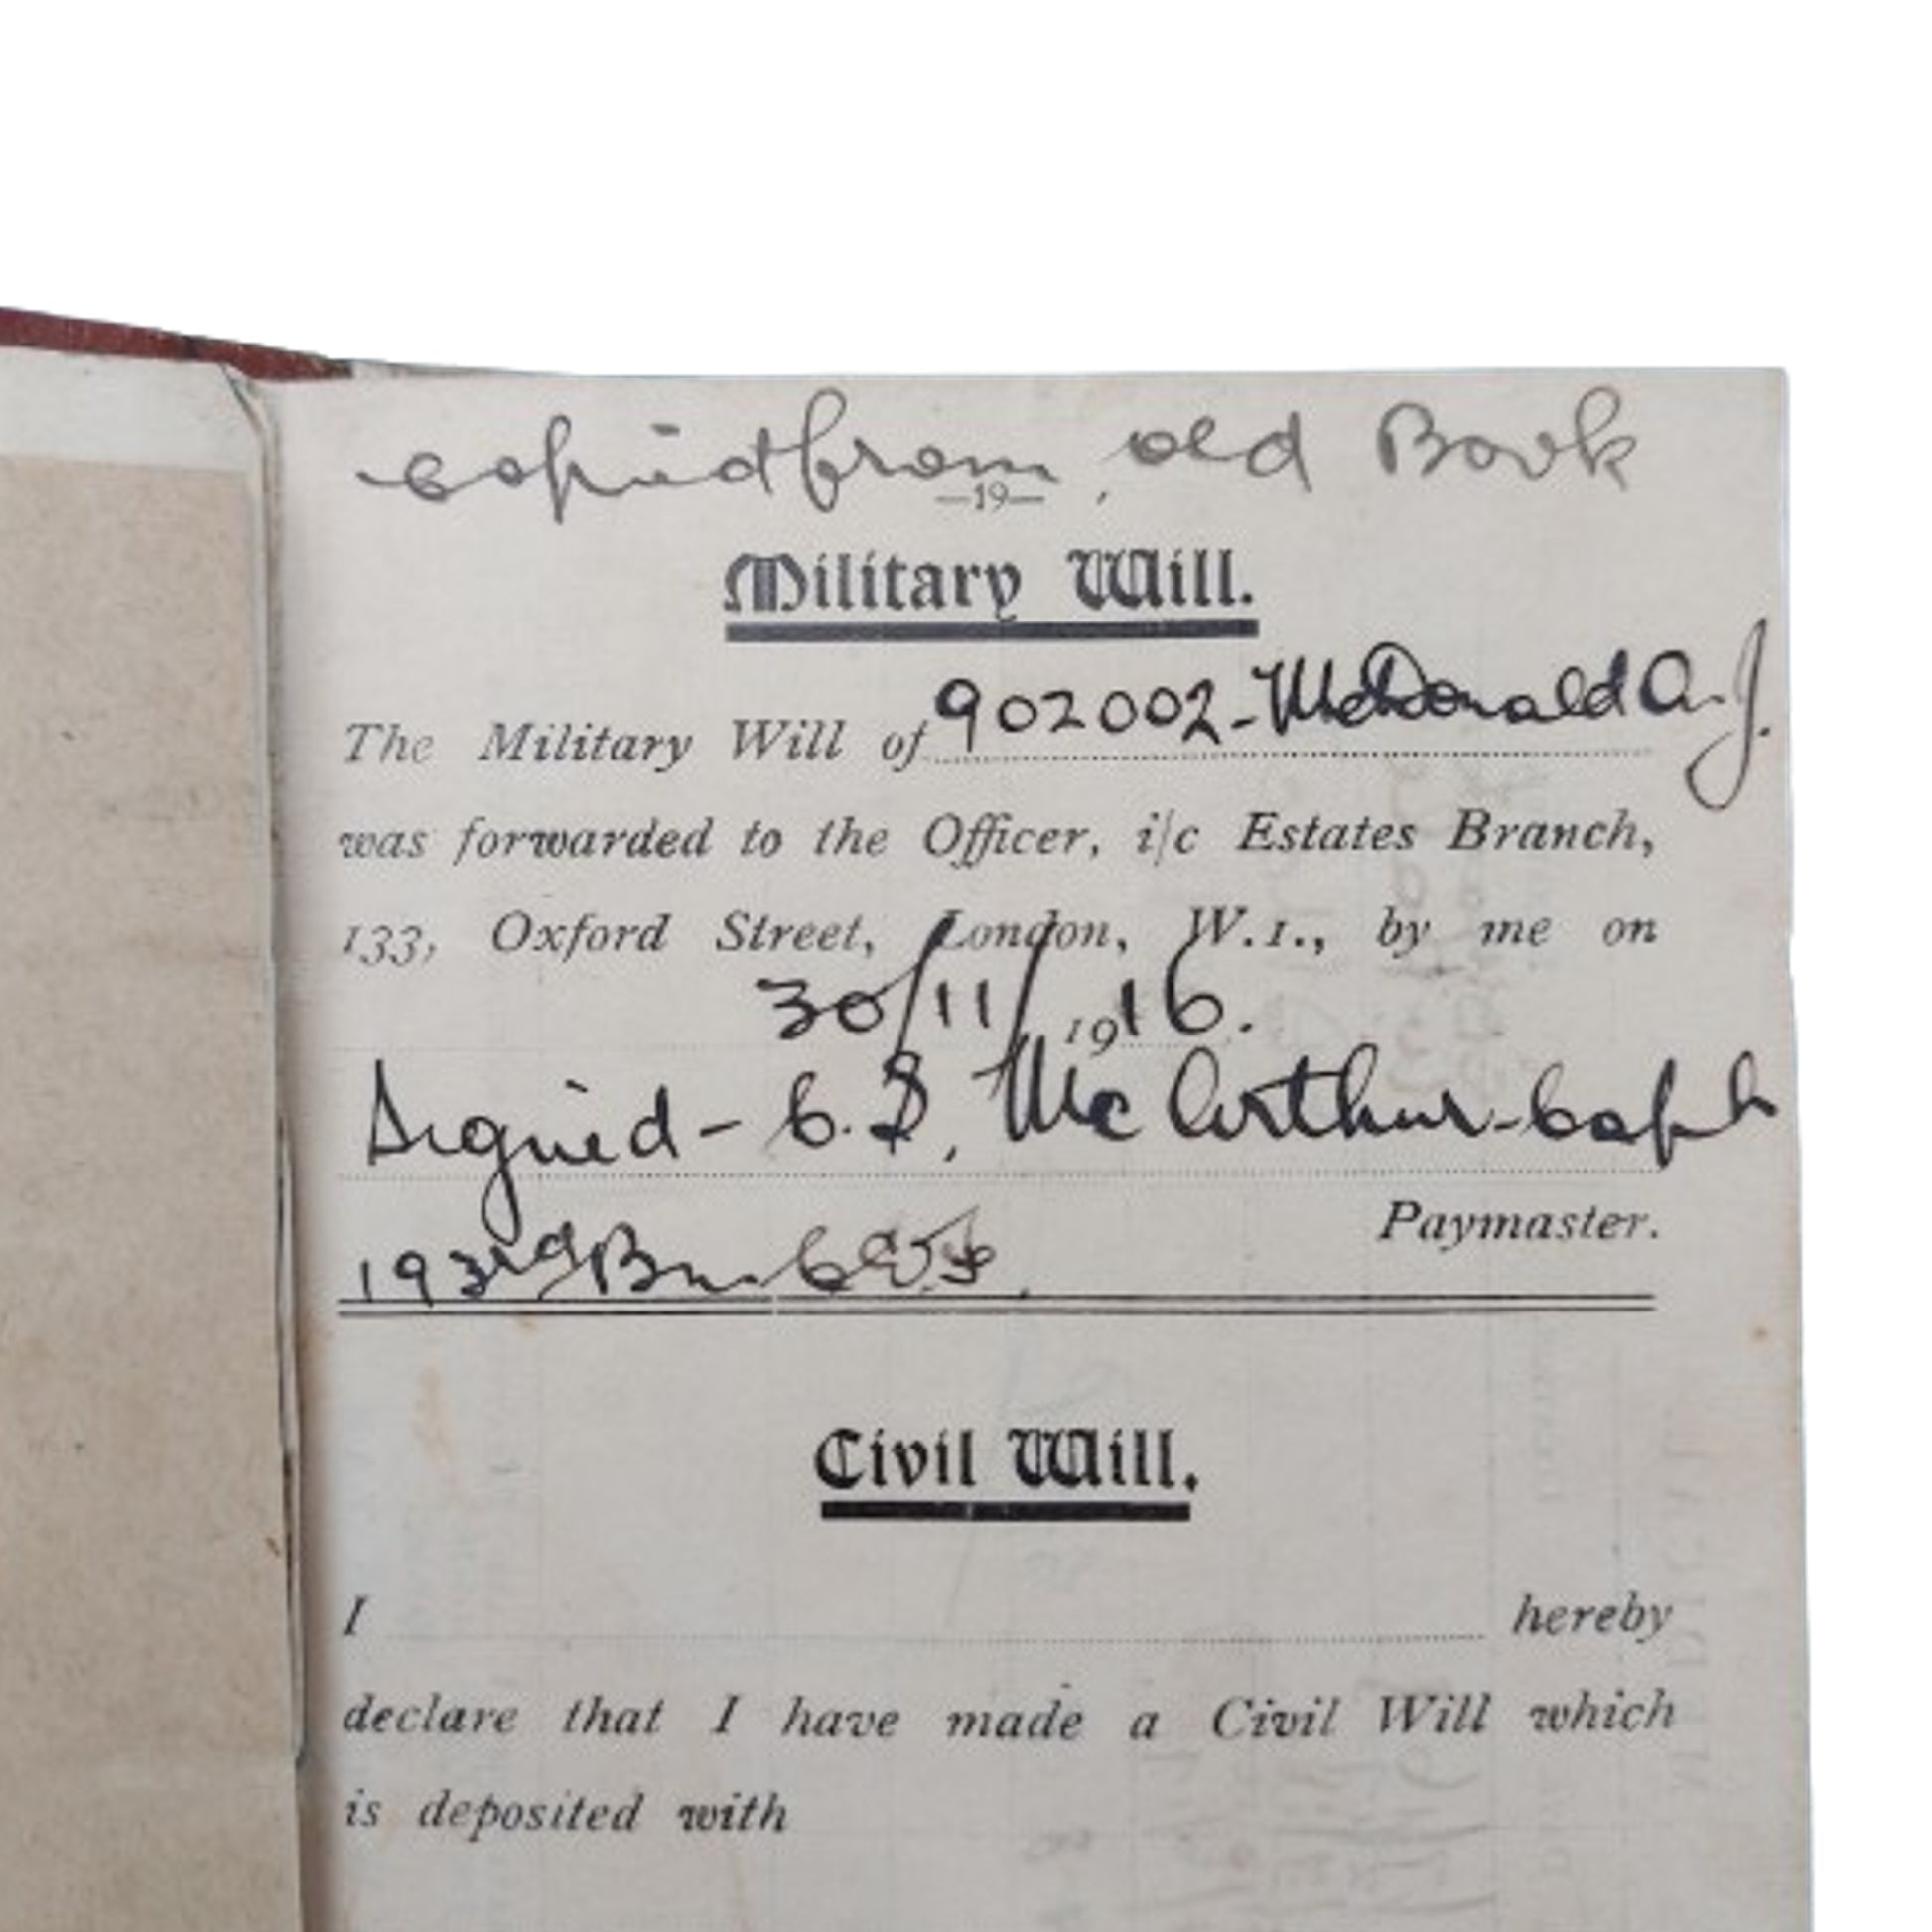 copied from old Book
—19—
Military Will.
The Military Will of 902002 - McDonald A. J.
was forwarded to the Officer, i/c Estates Branch,
133, Oxford Street, London, W.1., by me on
30/11/1916.
Signed - C. S. McArthur - Capt
Paymaster.
193rd Bn. C.E.F.
Civil Will.
I hereby
declare that I have made a Civil Will which
is deposited with